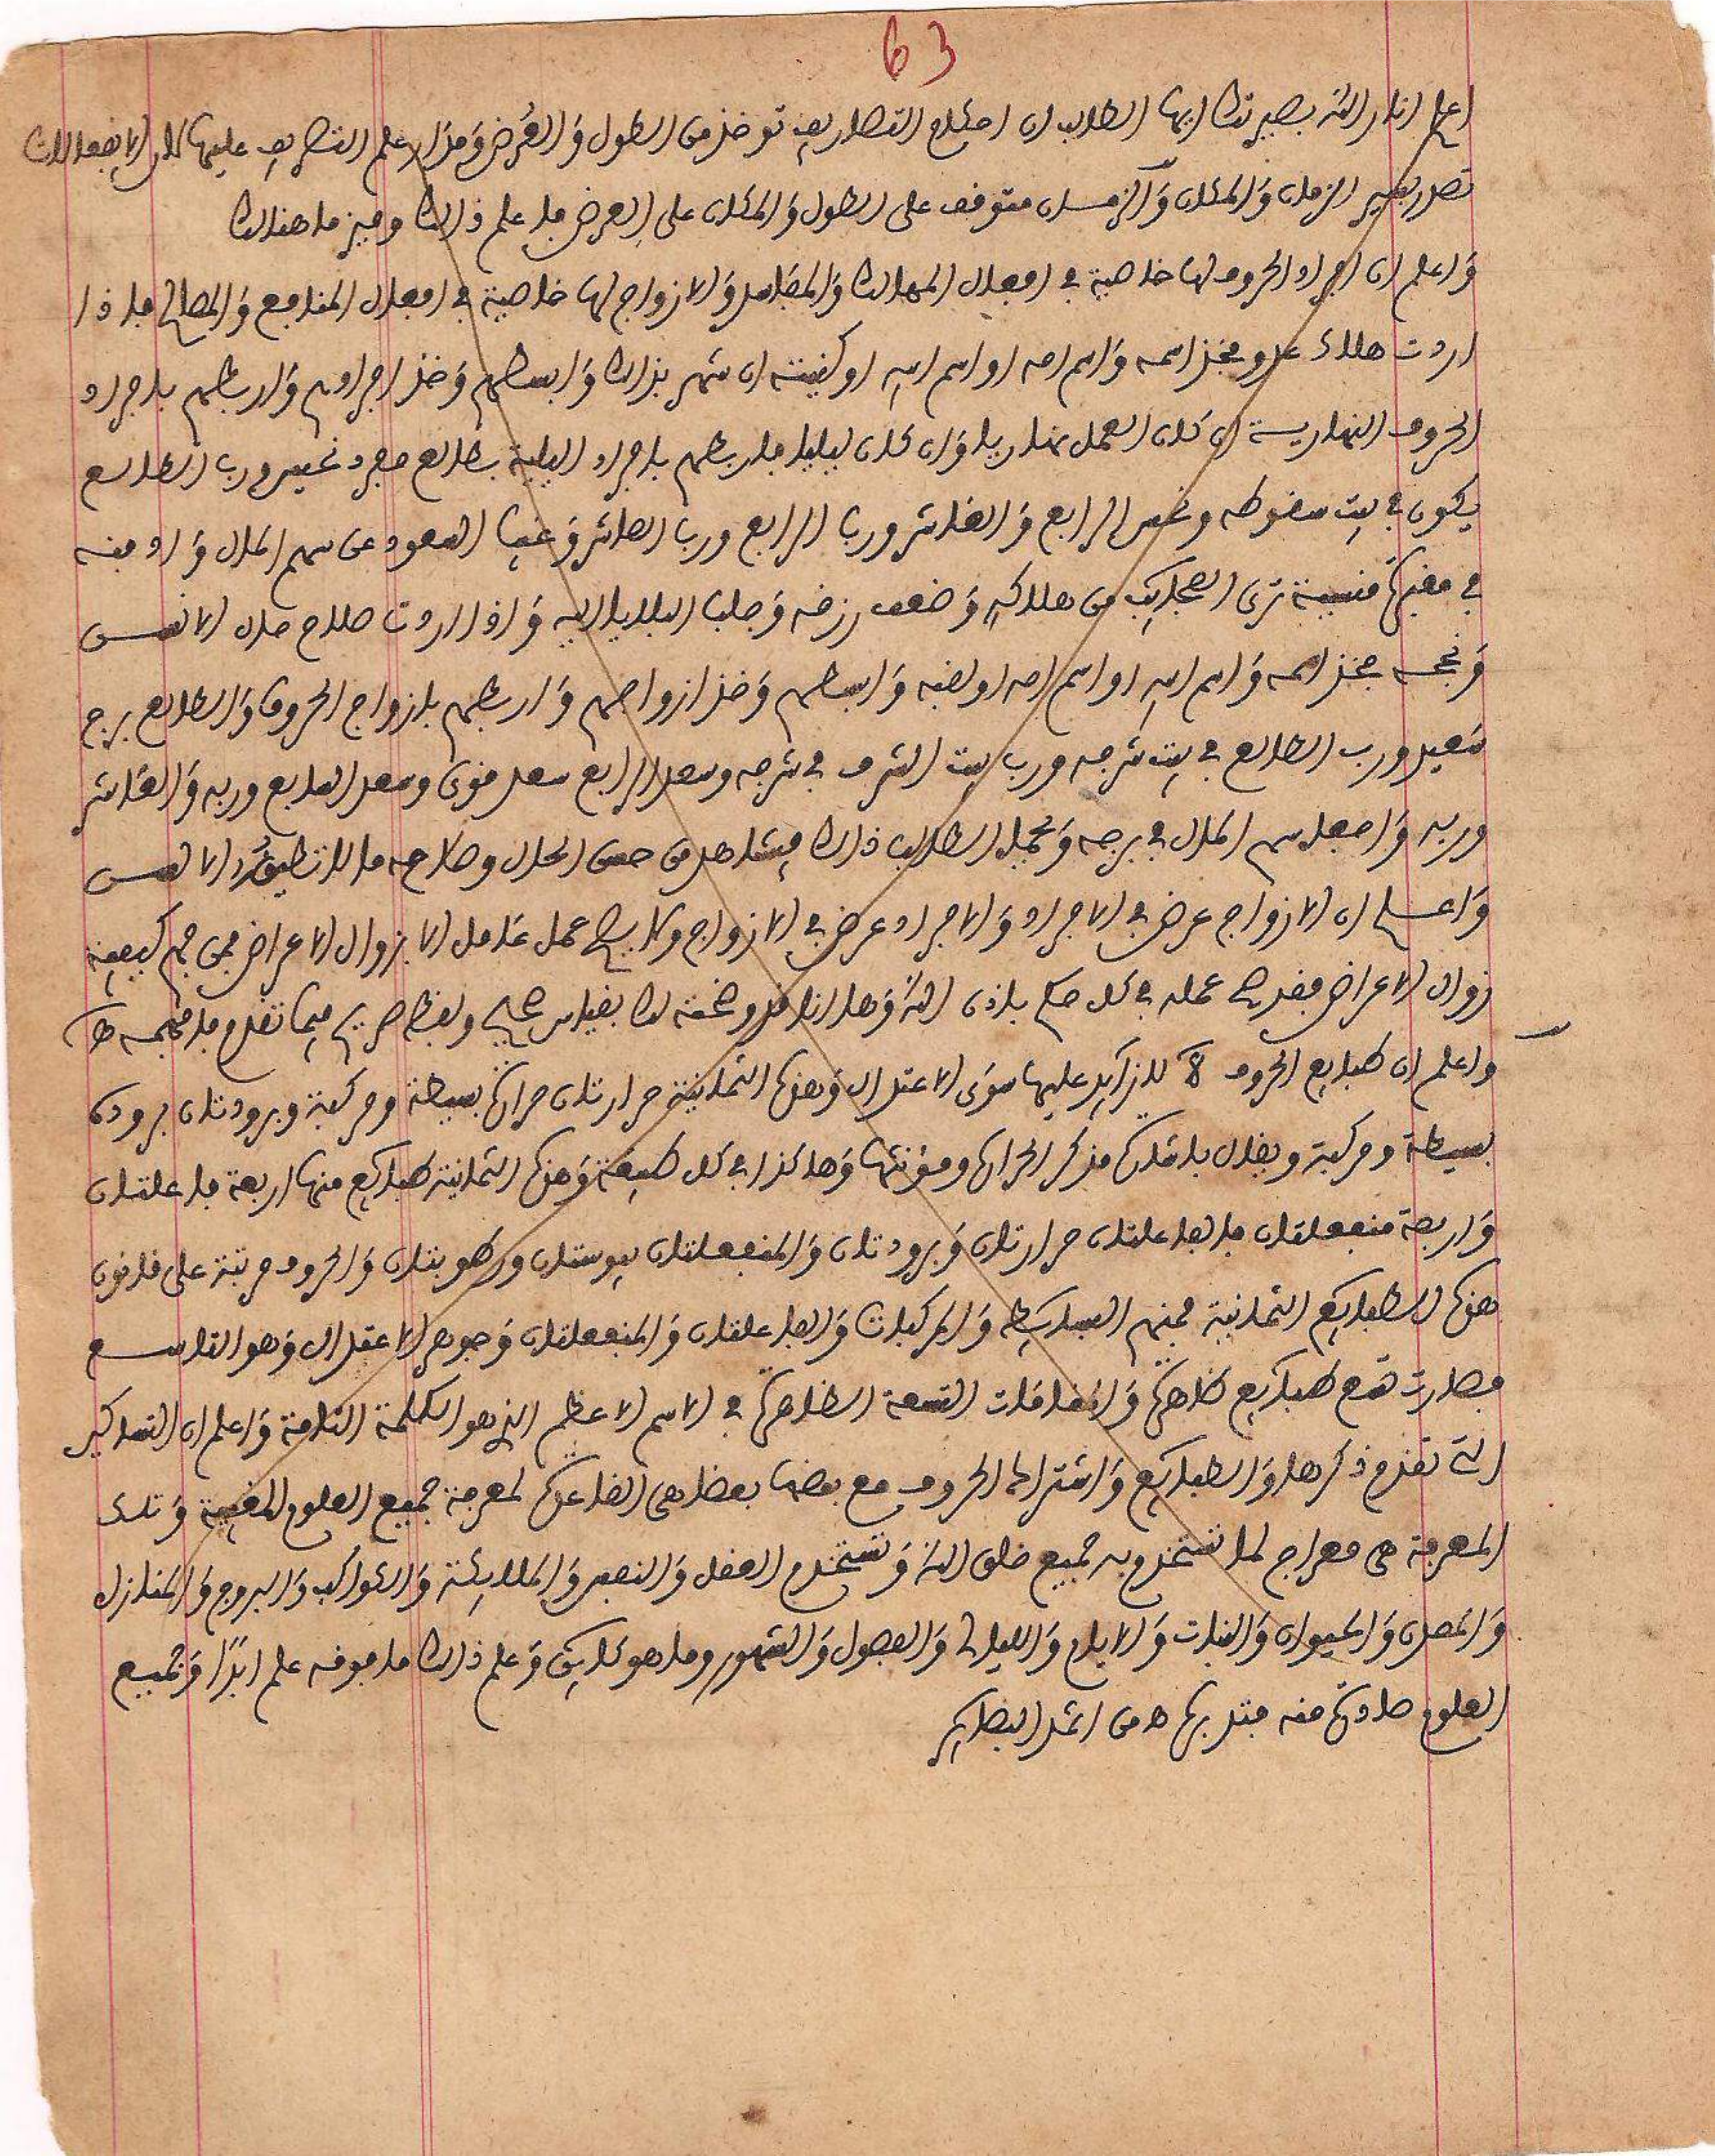 63
اعلم انار الله بصيرتك ايها الطالب ان احكام التصاريف توخذ من الطول والعرض ومدار علم التصريف عليها لان الانفعالات
تصاريف الزمان والمكان والزمان متوقف على الطول والمكان على العرض فاعلم ذالك وميز ما هنالك
واعلم ان افراد الحروف لها خاصية في افعال المهالك والمفاسد والازواج لها خاصية في افعال المنافع والمصالح فاذا
اردت هلاك عدو فخذ اسمه واسم امه او اسم ابيه او كنيته ان شهر بذالك وابسطهم وخذ افرادهم واربطهم بافراد
الحروف النهارية ان كان العمل نهاريا وان كان ليليا فاربطهم بافراد الليلية بطالع مفرد نحيس ورب الطالع
يكون في بيت سقوطه ونحس الرابع والعاشر ورب الرابع ورب العاشر وغيب السعود عن سهم المال وادفنه
في مقبرة منسية ترى العجايب من هلاكه وضعف رزقه وجلب البلايا اليه واذا اردت صلاح حال الانفس
ونجحه فخذ اسمه واسم ابيه او اسم امه او لقبه وابسطهم وخذ ازواجهم واربطهم بازواج الحروف والطالع برج
سعيد ورب الطالع في بيت شرفه ورب بيت الشرف في شرفه وسعد الرابع سعد قوي وسعد السابع وربه والعاشر
وربه واجعل سهم المال في برجه وتحمل الطالب ذالك فيشاهد من حسن الحال وصلاحه ما لا تطيقه الانفس
واعلم ان الازواج عرض في الافراد والافراد عرض في الازواج ولا يصح عمل عامل الا بزوال الاعراض فمن فهم كيفية
زوال الاعراض فقد صح عمله في كل حكم باذن الله وها انا قد وضحته لك بقياس صحيح ولفظ صريح فيما تقدم فافهمه
واعلم ان طبايع الحروف ٨ لا زايد عليها سوى الاعتدال وهذه الثمانية حرارتان حرارة بسيطة ومركبة وبرودتان برودة
بسيطة ومركبة ويقال باثارة مذكر الحرارة ومؤنثها وهاكذا في كل طبيعة وهذه الثمانية طبايع منها اربعة فاعلتان
واربعة منفعلتان فالفاعلتان حرارتان وبرودتان والمنفعلتان يبوستان ورطوبتان والحروف مرتبة على قانون
هذه الطبايع الثمانية فمنهم البسايط والمركبات والفاعلتان والمنفعلتان وجوهر الاعتدال وهو التاسع
فصارت تسع طبايع ظاهرة والمقامات التسعة الظاهرة في الاسم الاعظم الذي هو الكلمة التامة واعلم ان التساكير
التي تقدم ذكرها والطبايع واشتراك الحروف مع بعضها بعضا هي القاعدة لمعرفة جميع العلوم المغيبة وتلك
المعرفة هي معراج لما تستخدم به جميع خلق الله وتستخدم العقل والنفس والملايكة والكواكب والبروج والمنازل
والمعدن والحيوان والنبات والايام والليالي والفصول والشهور وما هو كاين وعلم ذالك ما فوقه علم ابدا وجميع
العلوم صادرة منه فتدبره من اشد البصاير